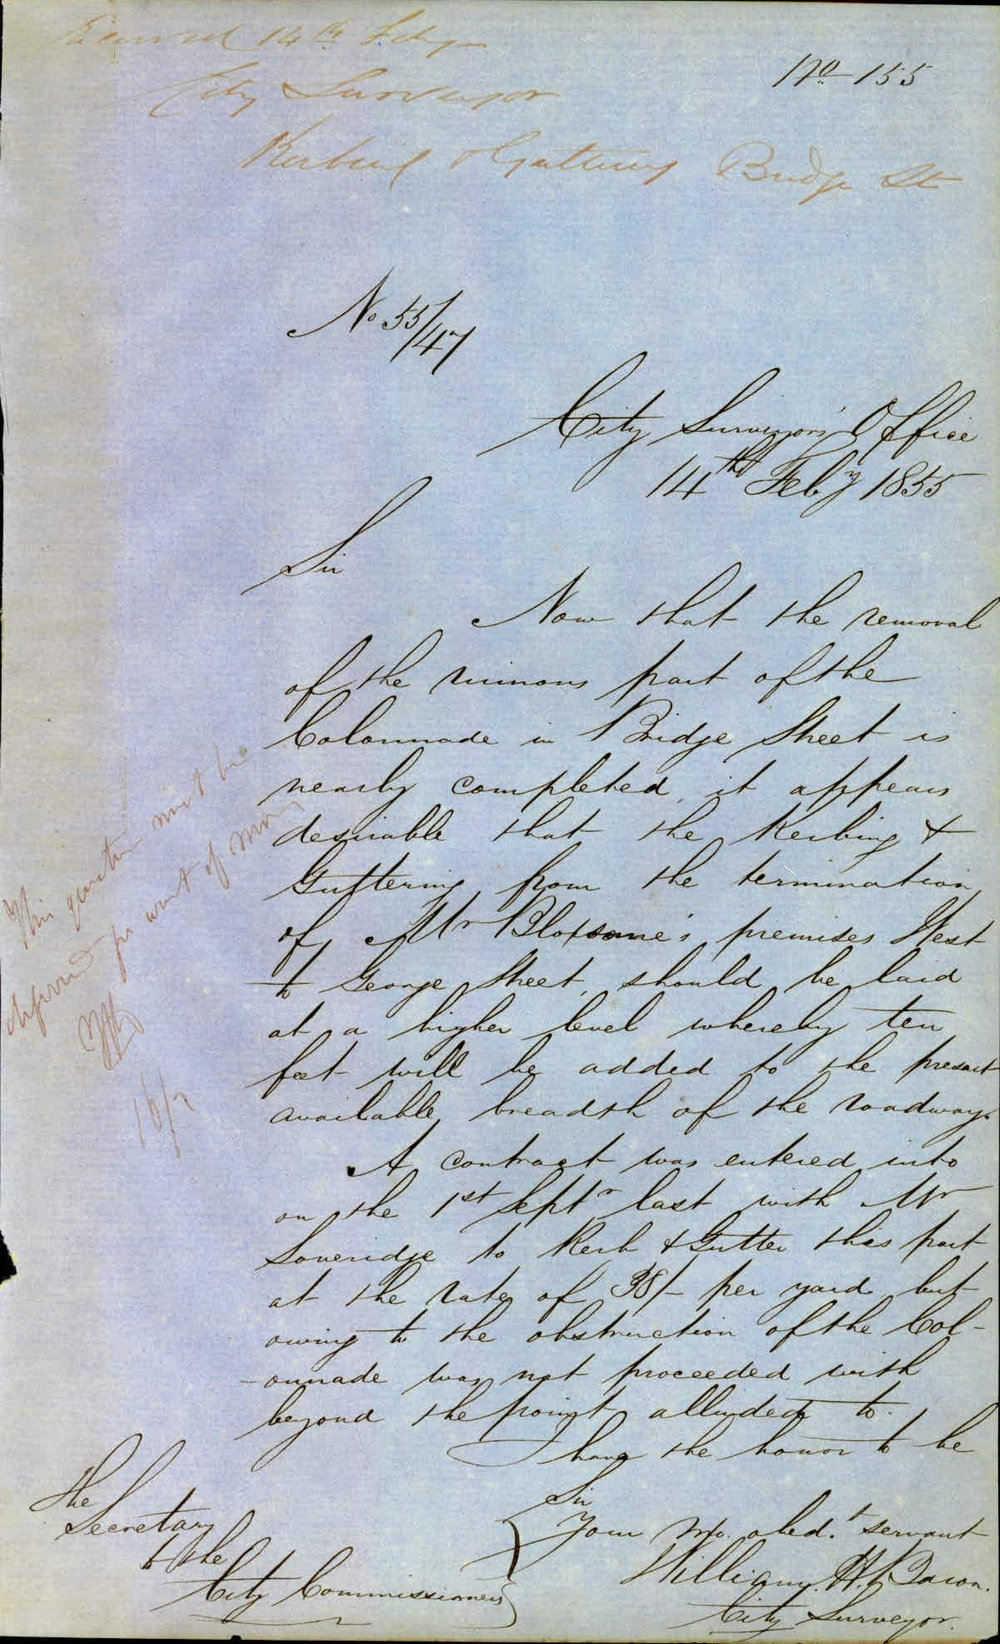 Received 14th Feby
No 155
City Surveyor
Kerbing & Guttering Bridge St
No 55/47
City Surveyors' Office
14th Feby 1855
Sir
Now that the removal
of the ruinous part of the
Colonnade in Bridge Street is
nearly completed, it appears
desirable that the Kerbing &
Guttering from the termination
of Mr Bloxsome's premises West
to George Street, should be laid
at a higher level whereby ten
feet will be added to the present
available breadth of the roadway.
A contract was entered into
on the 1st Septr last with Mr
Loveridge to Kerb & Gutter this part
at the rate of 38/- per yard but
owing to the obstruction of the Col-
-onnade was not proceeded with
beyond the point alluded to.
I have the honor to be
Sir
Your Mo. obed.t servant
William H.
City Surveyor.
The
Secretary
to the
City Commissioners
This question must be
deferred for want of
16/2